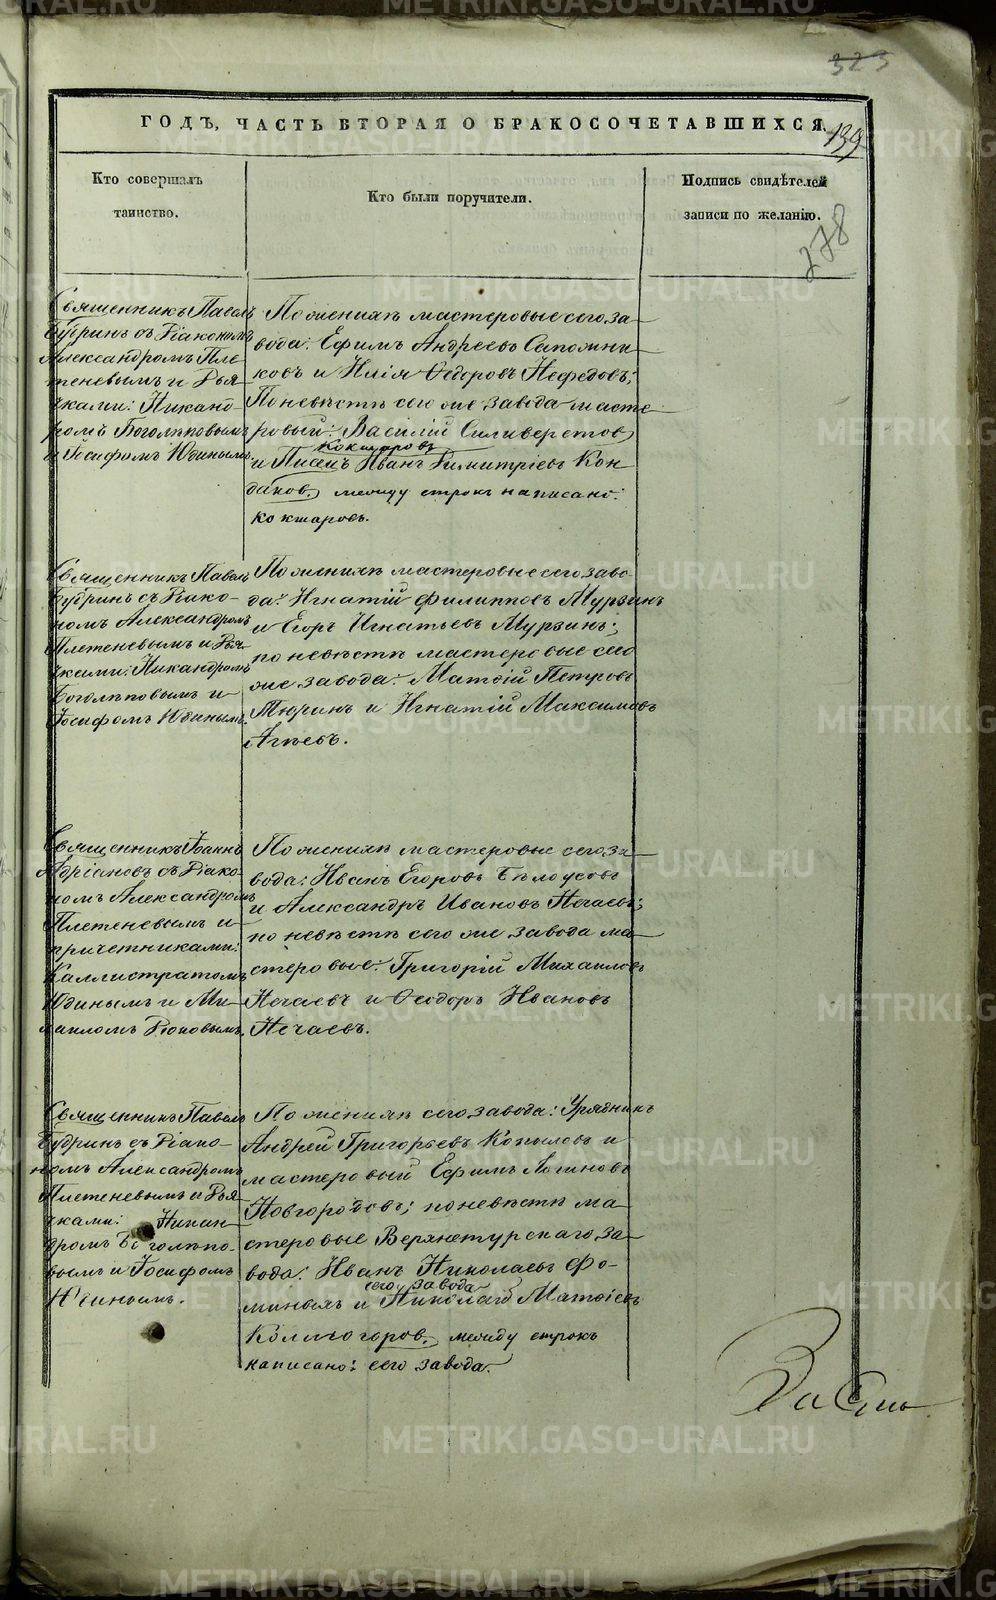 323
ГОДЪ, ЧАСТЬ ВТОРАЯ О БРАКОСОЧЕТАВШИХСЯ.
139
Кто совершалъ
таинство.
Кто были поручители.
Подпись свидѣтелей
записи по желанію.
278
Священникъ Павелъ
Будринъ съ Діакономъ
Александромъ Пле-
теневымъ и Дья-
чками: Никанд-
ромъ Боголѣповымъ
и Іосифомъ Юдинымъ.
По женихѣ мастеровые сего за-
вода: Ефимъ Андреевъ Сапожни-
ковъ и Илія Ѳедоровъ Нефедовъ;
По невѣстѣ сего же завода масте-
ровый: Василій Силиверстовъ
Кокшаровъ
и Писецъ Иванъ Димитріевъ Кон-
даковъ, между строкъ написано:
Кокшаровъ.
Священникъ Павелъ
Будринъ съ Діако-
номъ Александромъ
Плетеневымъ и Дья-
чками: Никандромъ
Боголѣповымъ и
Іосифомъ Юдинымъ.
По женихѣ мастеровые сего заво-
да: Игнатій Филипповъ Мурзинъ
и Егоръ Игнатьевъ Мурзинъ;
по невѣстѣ мастеровые сего
же завода: Матѳій Петровъ
Тюринъ и Игнатій Максимовъ
Агѣевъ.
Священникъ Іоаннъ
Адріановъ съ Діако-
номъ Александромъ
Плетеневымъ и
причетниками:
Каллистратомъ
Юдинымъ и Ми-
хаиломъ Дюковымъ.
По женихѣ мастеровые сего за-
вода: Иванъ Егоровъ Бѣлоусовъ
и Александръ Ивановъ Нечаевъ;
по невѣстѣ сего же завода ма-
стеровые: Григорій Михаиловъ
Нечаевъ и Ѳеодоръ Ивановъ
Нечаевъ.
Священникъ Павелъ
Будринъ съ Діако-
номъ Александромъ
Плетеневымъ и Дья-
чками: Никан-
дромъ Боголѣпо-
вымъ и Іосифомъ
Юдинымъ.
По женихѣ сего завода: Урядникъ
Андрей Григорьевъ Копыловъ и
мастеровый Ефимъ Логиновъ
Новгородовъ; по невѣстѣ ма-
стеровые Верхнетурскаго за-
вода: Иванъ Николаевъ Фо-
сего завода
миныхъ и Николай Матѳіевъ
Колмогоровъ, между строкъ
написано: сего завода.